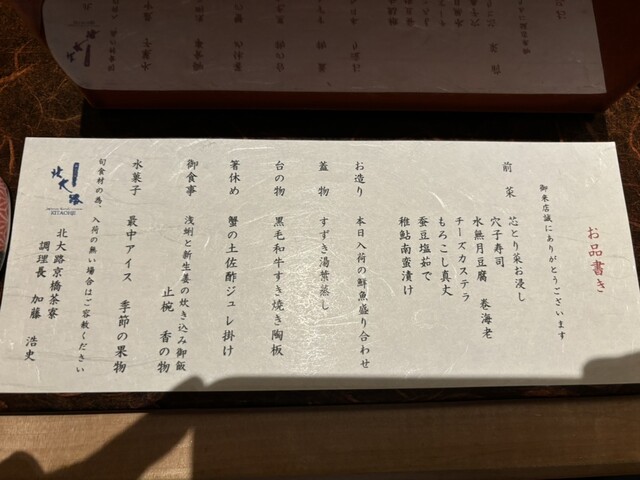 お品書き
御来店誠にありがとうございます
前菜 芯とり菜お浸し
穴子寿司
水無月豆腐 巻海老
チーズカステラ
もろこし真丈
蚕豆塩茹で
稚鮎南蛮漬け
お造り 本日入荷の鮮魚盛り合わせ
蓋物 すずき湯葉蒸し
台の物 黒毛和牛すき焼き陶板
箸休め 蟹の土佐酢ジュレ掛け
御食事 浅蜊と新生姜の炊き込み御飯
止椀 香の物
水菓子 最中アイス 季節の果物
旬食材の為、入荷の無い場合はご容赦ください
北大路京橋茶寮
調理長 加藤 浩史
北大路
KITAOHJI